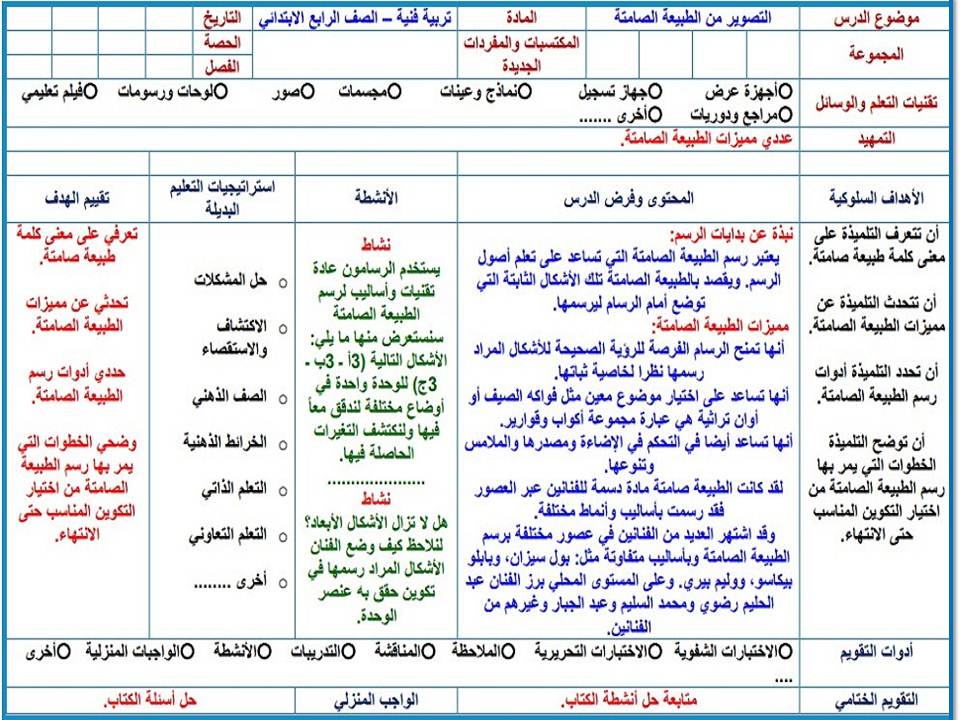 موضوع الدرس
التصوير من الطبيعة الصامتة
المادة
تربية فنية – الصف الرابع الابتدائي
التاريخ
المجموعة
المكتسبات والمفردات
الجديدة
الحصة
الفصل
تقنيات التعلم والوسائل
Oأجهزة عرض Oجهاز تسجيل Oنماذج وعينات Oمجسمات Oصور Oلوحات ورسومات Oفيلم تعليمي
Oمراجع ودوريات Oأخرى .......
التمهيد
عددي مميزات الطبيعة الصامتة.
الأهداف السلوكية
المحتوى وفرض الدرس
الأنشطة
استراتيجيات التعليم
البديلة
تقييم الهدف
أن تتعرف التلميذة على
معنى كلمة طبيعة صامتة.
أن تتحدث التلميذة عن
مميزات الطبيعة الصامتة.
أن تحدد التلميذة أدوات
رسم الطبيعة الصامتة.
أن توضح التلميذة
الخطوات التي يمر بها
رسم الطبيعة الصامتة من
اختيار التكوين المناسب
حتى الانتهاء.
نبذة عن بدايات الرسم:
يعتبر رسم الطبيعة الصامتة التي تساعد على تعلم أصول
الرسم. ويقصد بالطبيعة الصامتة تلك الأشكال الثابتة التي
توضع أمام الرسام ليرسمها.
مميزات الطبيعة الصامتة:
أنها تمنح الرسام الفرصة للرؤية الصحيحة للأشكال المراد
رسمها نظرا لخاصية ثباتها.
أنها تساعد على اختيار موضوع معين مثل فواكه الصيف أو
أوان تراثية هي عبارة مجموعة أكواب وقوارير.
أنها تساعد أيضا في التحكم في الإضاءة ومصدرها والملامس
وتنوعها.
لقد كانت الطبيعة صامتة مادة دسمة للفنانين عبر العصور
فقد رسمت بأساليب وأنماط مختلفة.
وقد اشتهر العديد من الفنانين في عصور مختلفة برسم
الطبيعة الصامتة وبأساليب متفاوتة مثل: بول سيزان، وبابلو
بيكاسو، ووليم بيري. وعلى المستوى المحلي برز الفنان عبد
الحليم رضوي ومحمد السليم وعبد الجبار وغيرهم من
الفنانين.
نشاط
يستخدم الرسامون عادة
تقنيات وأساليب لرسم
الطبيعة الصامتة
سنستعرض منها ما يلي:
الأشكال التالية (3أ - 3ب -
3ج) للوحدة واحدة في
أوضاع مختلفة لندقق معاً
فيها ولنكتشف التغيرات
الحاصلة فيها.
......................
نشاط
هل لا تزال الأشكال الأبعاد؟
لنلاحظ كيف وضع الفنان
الأشكال المراد رسمها في
تكوين حقق به عنصر
الوحدة.
o حل المشكلات
o الاكتشاف
والاستقصاء
o الصف الذهني
o الخرائط الذهنية
o التعلم الذاتي
o التعلم التعاوني
o أخرى ........
تعرفي على معنى كلمة
طبيعة صامتة.
تحدثي عن مميزات
الطبيعة الصامتة.
حددي أدوات رسم
الطبيعة الصامتة.
وضحي الخطوات التي
يمر بها رسم الطبيعة
الصامتة من اختيار
التكوين المناسب حتى
الانتهاء.
أدوات التقويم
Oالاختبارات الشفوية Oالاختبارات التحريرية Oالملاحظة Oالمناقشة Oالتدريبات Oالأنشطة Oالواجبات المنزلية Oأخرى
....
التقويم الختامي
متابعة حل أنشطة الكتاب.
الواجب المنزلي
حل أسئلة الكتاب.